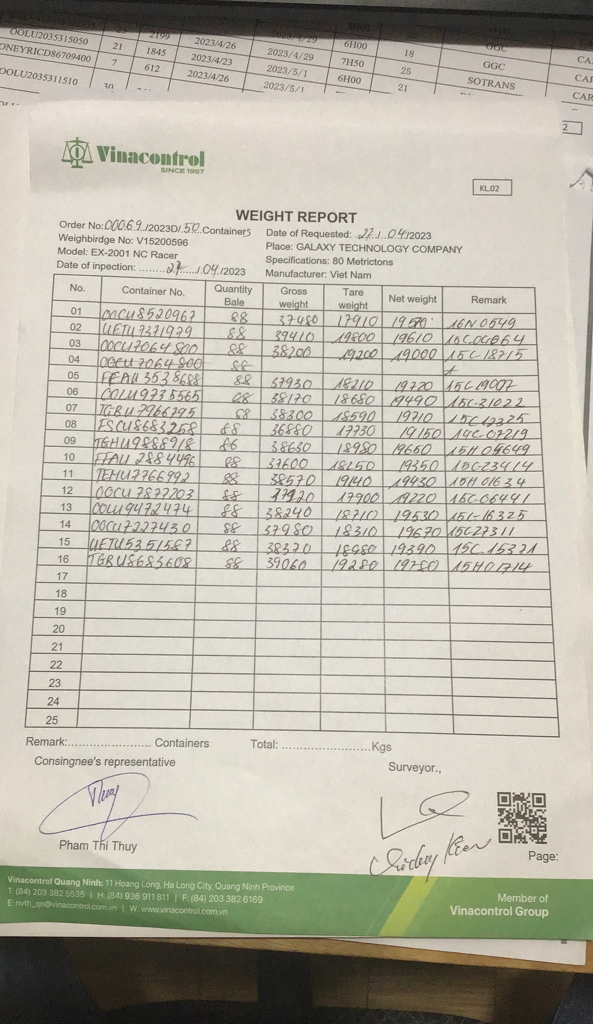 OOLU2035315050 2199 2023/4/26 2023/4/29 6H00 18 GGC
ONEYRICD86709400 21 1845 2023/4/23 2023/4/29 7H50 25 GGC
OOLU2035311510 7 612 2023/4/26 2023/5/1 6H00 21 SOTRANS CAR
2023/5/1
Vinacontrol
SINCE 1957
KL.02
WEIGHT REPORT
Order No:00069./2023D/.50.Containers Date of Requested: .22.1.04./2023
Weighbirdge No: V15200596 Place: GALAXY TECHNOLOGY COMPANY
Model: EX-2001 NC Racer Specifications: 80 Metrictons
Date of inpection: ........27..../.04./2023 Manufacturer: Viet Nam
No. Container No. Quantity Bale Gross weight Tare weight Net weight Remark
01 OOCU8520967 88 37480 17910 16N0549
02 UETU7371979 88 39410 19800 19610
03 OOCU7064800 88 38200 19200 19000 15C18715
04 OOCU7064800 88
05 88 37930 18210 19720 15C19007
06 88 38170 18680 19490 15C-31022
07 TGBU7966795 68 38300 18590 19710
08 FSCU8683258 88 36880 17730 19150 14C-07219
09 TGHU9888918 86 38630 18980 19650 15H05649
10 FFAU2884496 88 37600 18250 19350 15C23414
11 TEMU7766992 88 38570 19140 19430 15H01634
12 OOCU7877203 88 17900 19220 15C-06441
13 OOLU9472474 88 38240 18710 19530 15C-16325
14 OOCU7227430 88 37980 18310 19670 15C27311
15 UETU5351587 88 38370 18980 19390 15C.15371
16 TGBU8683608 88 39060 19280 19780 15H01714
17
18
19
20
21
22
23
24
25
Remark:........................ Containers Total: .........................Kgs
Consingnee's representative Surveyor.,
Thuy
Pham Thi Thuy
Page:
Vinacontrol Quang Ninh: 11 Hoang Long, Ha Long City, Quang Ninh Province
T: (84) 203 382 5535 | H: (84) 936 911 811 | F: (84) 203 382 6169
E: nvth_qn@vinacontrol.com.vn | W: www.vinacontrol.com.vn
Member of
Vinacontrol Group